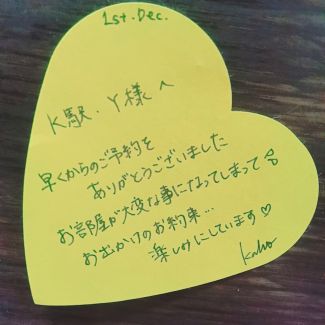 1st. Dec.
K駅・Y様へ
早くからのご予約を
ありがとうございました
お部屋が大変な事になってしまって
お出かけのお約束…
楽しみにしています♡
Kaho